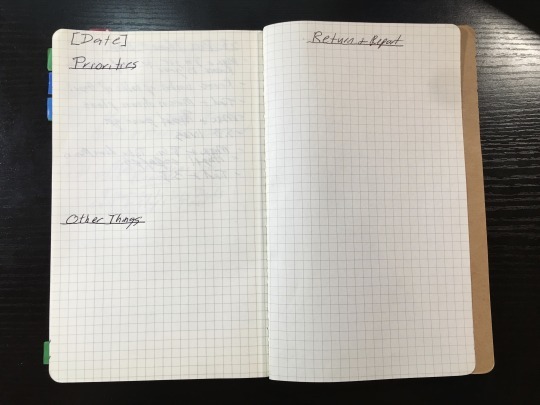 [Date]
Priorities
Other Things
Return & Report